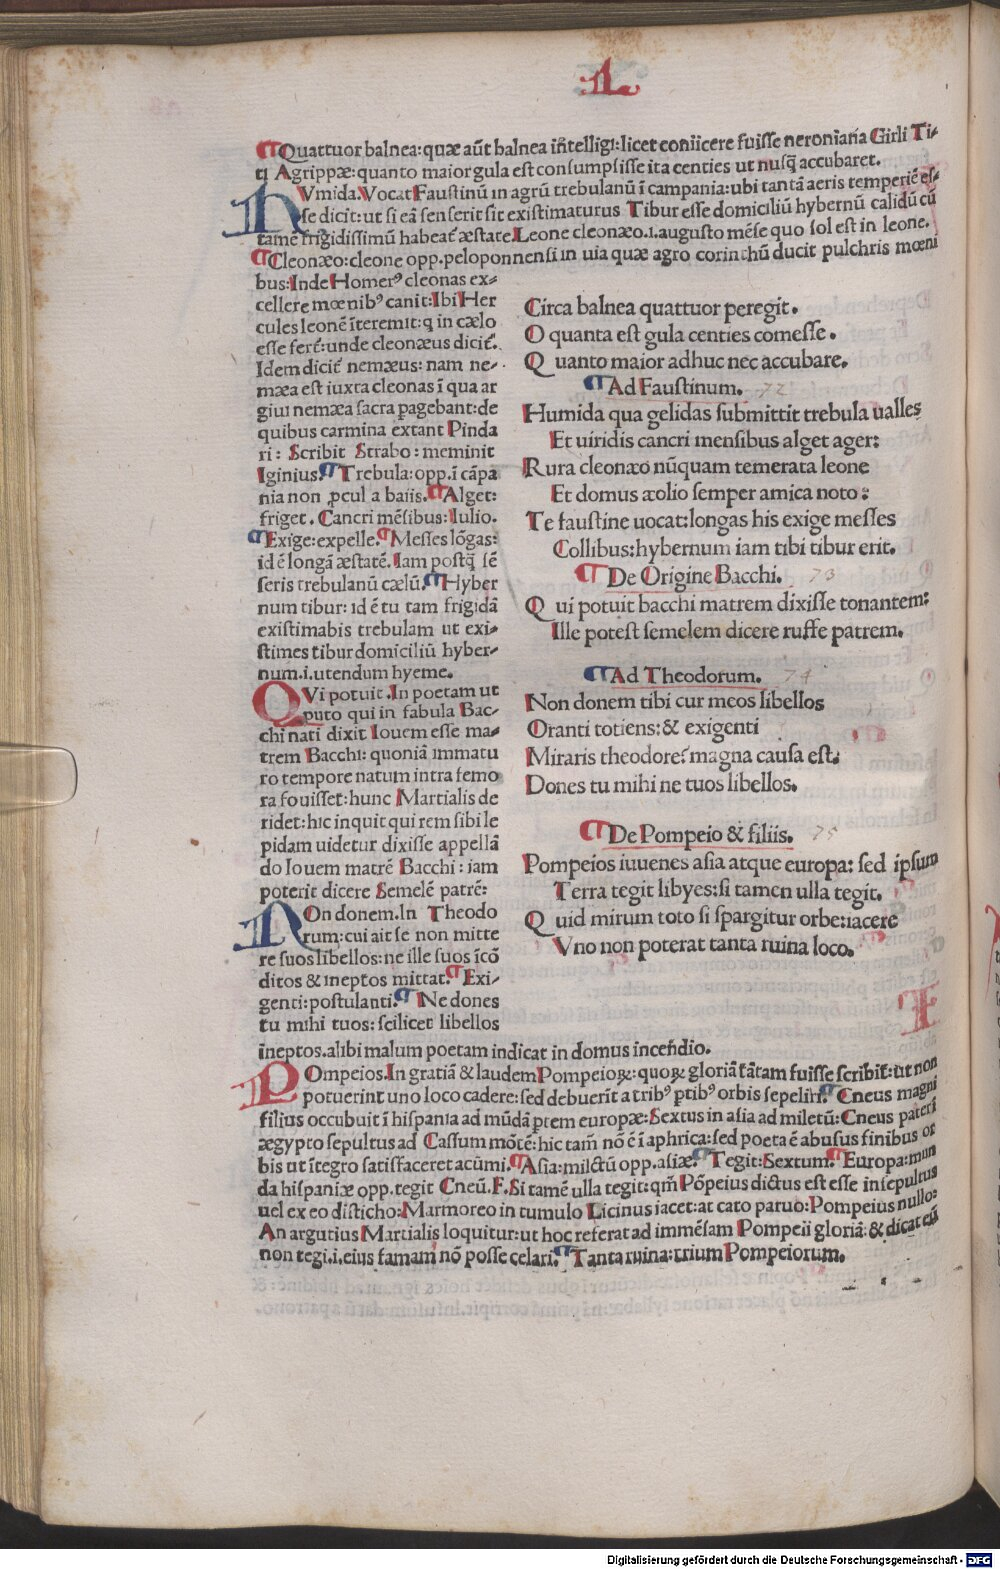 L
¶Quattuor balnea: quæ aũt balnea intelligi: licet coniicere fuisse neroniana Girli Ti-
ti Agrippæ: quanto maior gula est consumpsisse ita centies ut nusq̃ accubaret.
hVmida. Vocat Faustinũ in agrũ trebulanũ ĩ campania: ubi tantã aeris temperiẽ es-
se dicit: ut si eã senserit sit existimaturus Tibur esse domiciliũ hybernũ calidũ cũ
tamẽ frigidissimũ habeat̃ æstate. Leone cleonæo.i. augusto mẽse quo sol est in leone.
¶Cleonæo: cleone opp. peloponnensi in uia quæ agro corinthũ ducit pulchris mœni
bus: Inde Homerꝰ cleonas ex-
cellere mœnibꝰ canit: Ibi Her
cules leonẽ ĩteremit: q̃ in cælo
esse fert̃: unde cleonæus dicit̃.
Idem dicit̃ nemæus: nam ne-
mæa est iuxta cleonas ĩ qua ar
giui nemæa sacra pagebant: de
quibus carmina extant Pinda
ri: Scribit Strabo: meminit
Iginius. ¶Trebula: opp. ĩ cãpa
nia non ꝓcul a baiis. ¶Alget:
friget. Cancri mẽsibus: Iulio.
¶Exige: expelle. ¶Messes lõgas:
id ẽ longã æstatẽ. Iam postq̃ sẽ
seris trebulanũ cælũ. ¶Hyber
num tibur: id ẽ tu tam frigidã
existimabis trebulam ut exi-
stimes tibur domiciliũ hyber-
num.i. utendum hyeme.
QVi potuit. In poetam ut
puto qui in fabula Bac-
chi nati dixit Iouem esse ma-
trem Bacchi: quoniã immatu
ro tempore natum intra femo
ra fouisset: hunc Martialis de
ridet: hic inquit qui rem sibi le
pidam uidetur dixisse appellã
do Iouem matrẽ Bacchi: iam
poterit dicere Semelẽ patrẽ:
NOn donem. In Theodo
rum: cui ait se non mitte
re suos libellos: ne ille suos ĩcõ
ditos & ineptos mittat. ¶Exi-
genti: postulanti. ¶Ne dones
tu mihi tuos: scilicet libellos
ineptos. alibi malum poetam indicat in domus incendio.
Circa balnea quattuor peregit.
O quanta est gula centies comesse.
Quanto maior adhuc nec accubare.
¶Ad Faustinum. 72
Humida qua gelidas submittit trebula ualles
Et uiridis cancri mensibus alget ager:
Rura cleonæo nũquam temerata leone
Et domus æolio semper amica noto:
Te faustine uocat: longas his exige messes
Collibus: hybernum iam tibi tibur erit.
¶De Origine Bacchi. 73
Qui potuit bacchi matrem dixisse tonantem:
Ille potest semelem dicere ruffe patrem.
¶Ad Theodorum. 74
Non donem tibi cur meos libellos
Oranti totiens: & exigenti
Miraris theodore? magna causa est.
Dones tu mihi ne tuos libellos.
¶De Pompeio & filiis. 75
Pompeios iuuenes asia atque europa: sed ipsum
Terra tegit libyes: si tamen ulla tegit.
Quid mirum toto si spargitur orbe: iacere
Vno non poterat tanta ruina loco.
POmpeios. In gratiã & laudem Pompeioꝝ: quoꝝ gloriã tãtam fuisse scribit: ut non
potuerint uno loco cadere: sed debuerĩt a tribꝰ ꝑtibꝰ orbis sepeliri. ¶Cneus magni
filius occubuit ĩ hispania ad mũdã ꝑtem europæ: Sextus in asia ad miletũ: Cneus pater ĩ
ægypto sepultus ad Cassum mõtẽ: hic tam̃ nõ ẽ ĩ aphrica: sed poeta ẽ abusus finibus or
bis ut ĩtegro satisfaceret acũmi. ¶Asia: milctũ opp. asiæ. ¶Tegit: Sextum. ¶Europa: mun
da hispaniæ opp. tegit Cneũ. F. Si tamẽ ulla tegit: qm̃ Põpeius dictus est esse insepultus
uel ex eo disticho: Marmoreo in tumulo Licinus iacet: at cato paruo: Pompeius nullo:
An argutius Martialis loquitur: ut hoc referat ad immẽsam Pompeii gloriã: & dicat eũ
non tegi.i. eius famam nõ posse celari. ¶Tanta ruina: trium Pompeiorum.
Digitalisierung gefördert durch die Deutsche Forschungsgemeinschaft - DFG